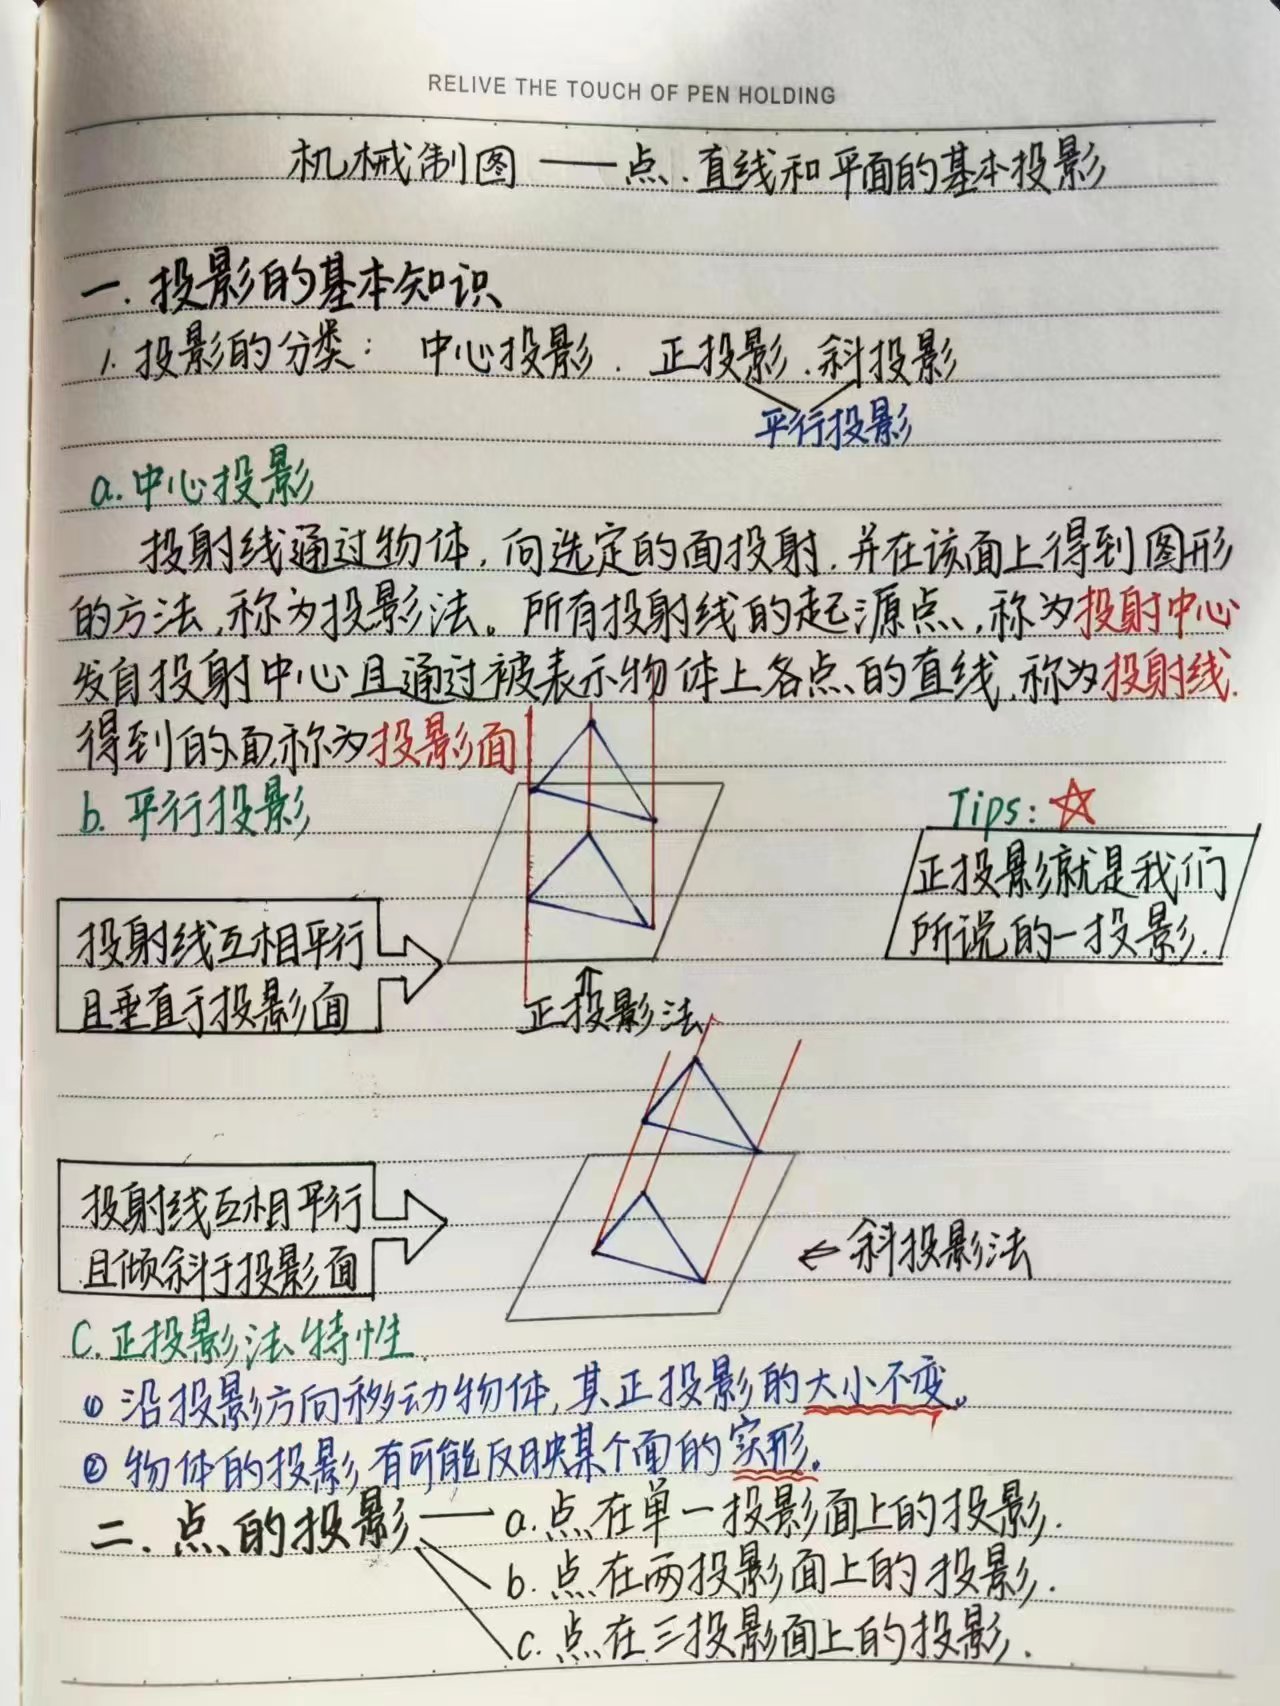 RELIVE THE TOUCH OF PEN HOLDING
机械制图——点.直线和平面的基本投影
一.投影的基本知识
1.投影的分类: 中心投影. 正投影.斜投影
平行投影
a.中心投影
投射线通过物体,向选定的面投射,并在该面上得到图形
的方法,称为投影法。所有投射线的起源点,称为投射中心
发自投射中心且通过被表示物体上各点的直线,称为投射线.
得到的面,称为投影面
b.平行投影
Tips:☆
正投影就是我们
所说的一投影.
投射线互相平行
且垂直于投影面
正投影法
投射线互相平行
且倾斜于投影面
←斜投影法
C.正投影法特性.
①沿投影方向移动物体,其正投影的大小不变。
②物体的投影,有可能反映某个面的实形。
二.点的投影——a.点在单一投影面上的投影.
b.点在两投影面上的投影.
c.点在三投影面上的投影.